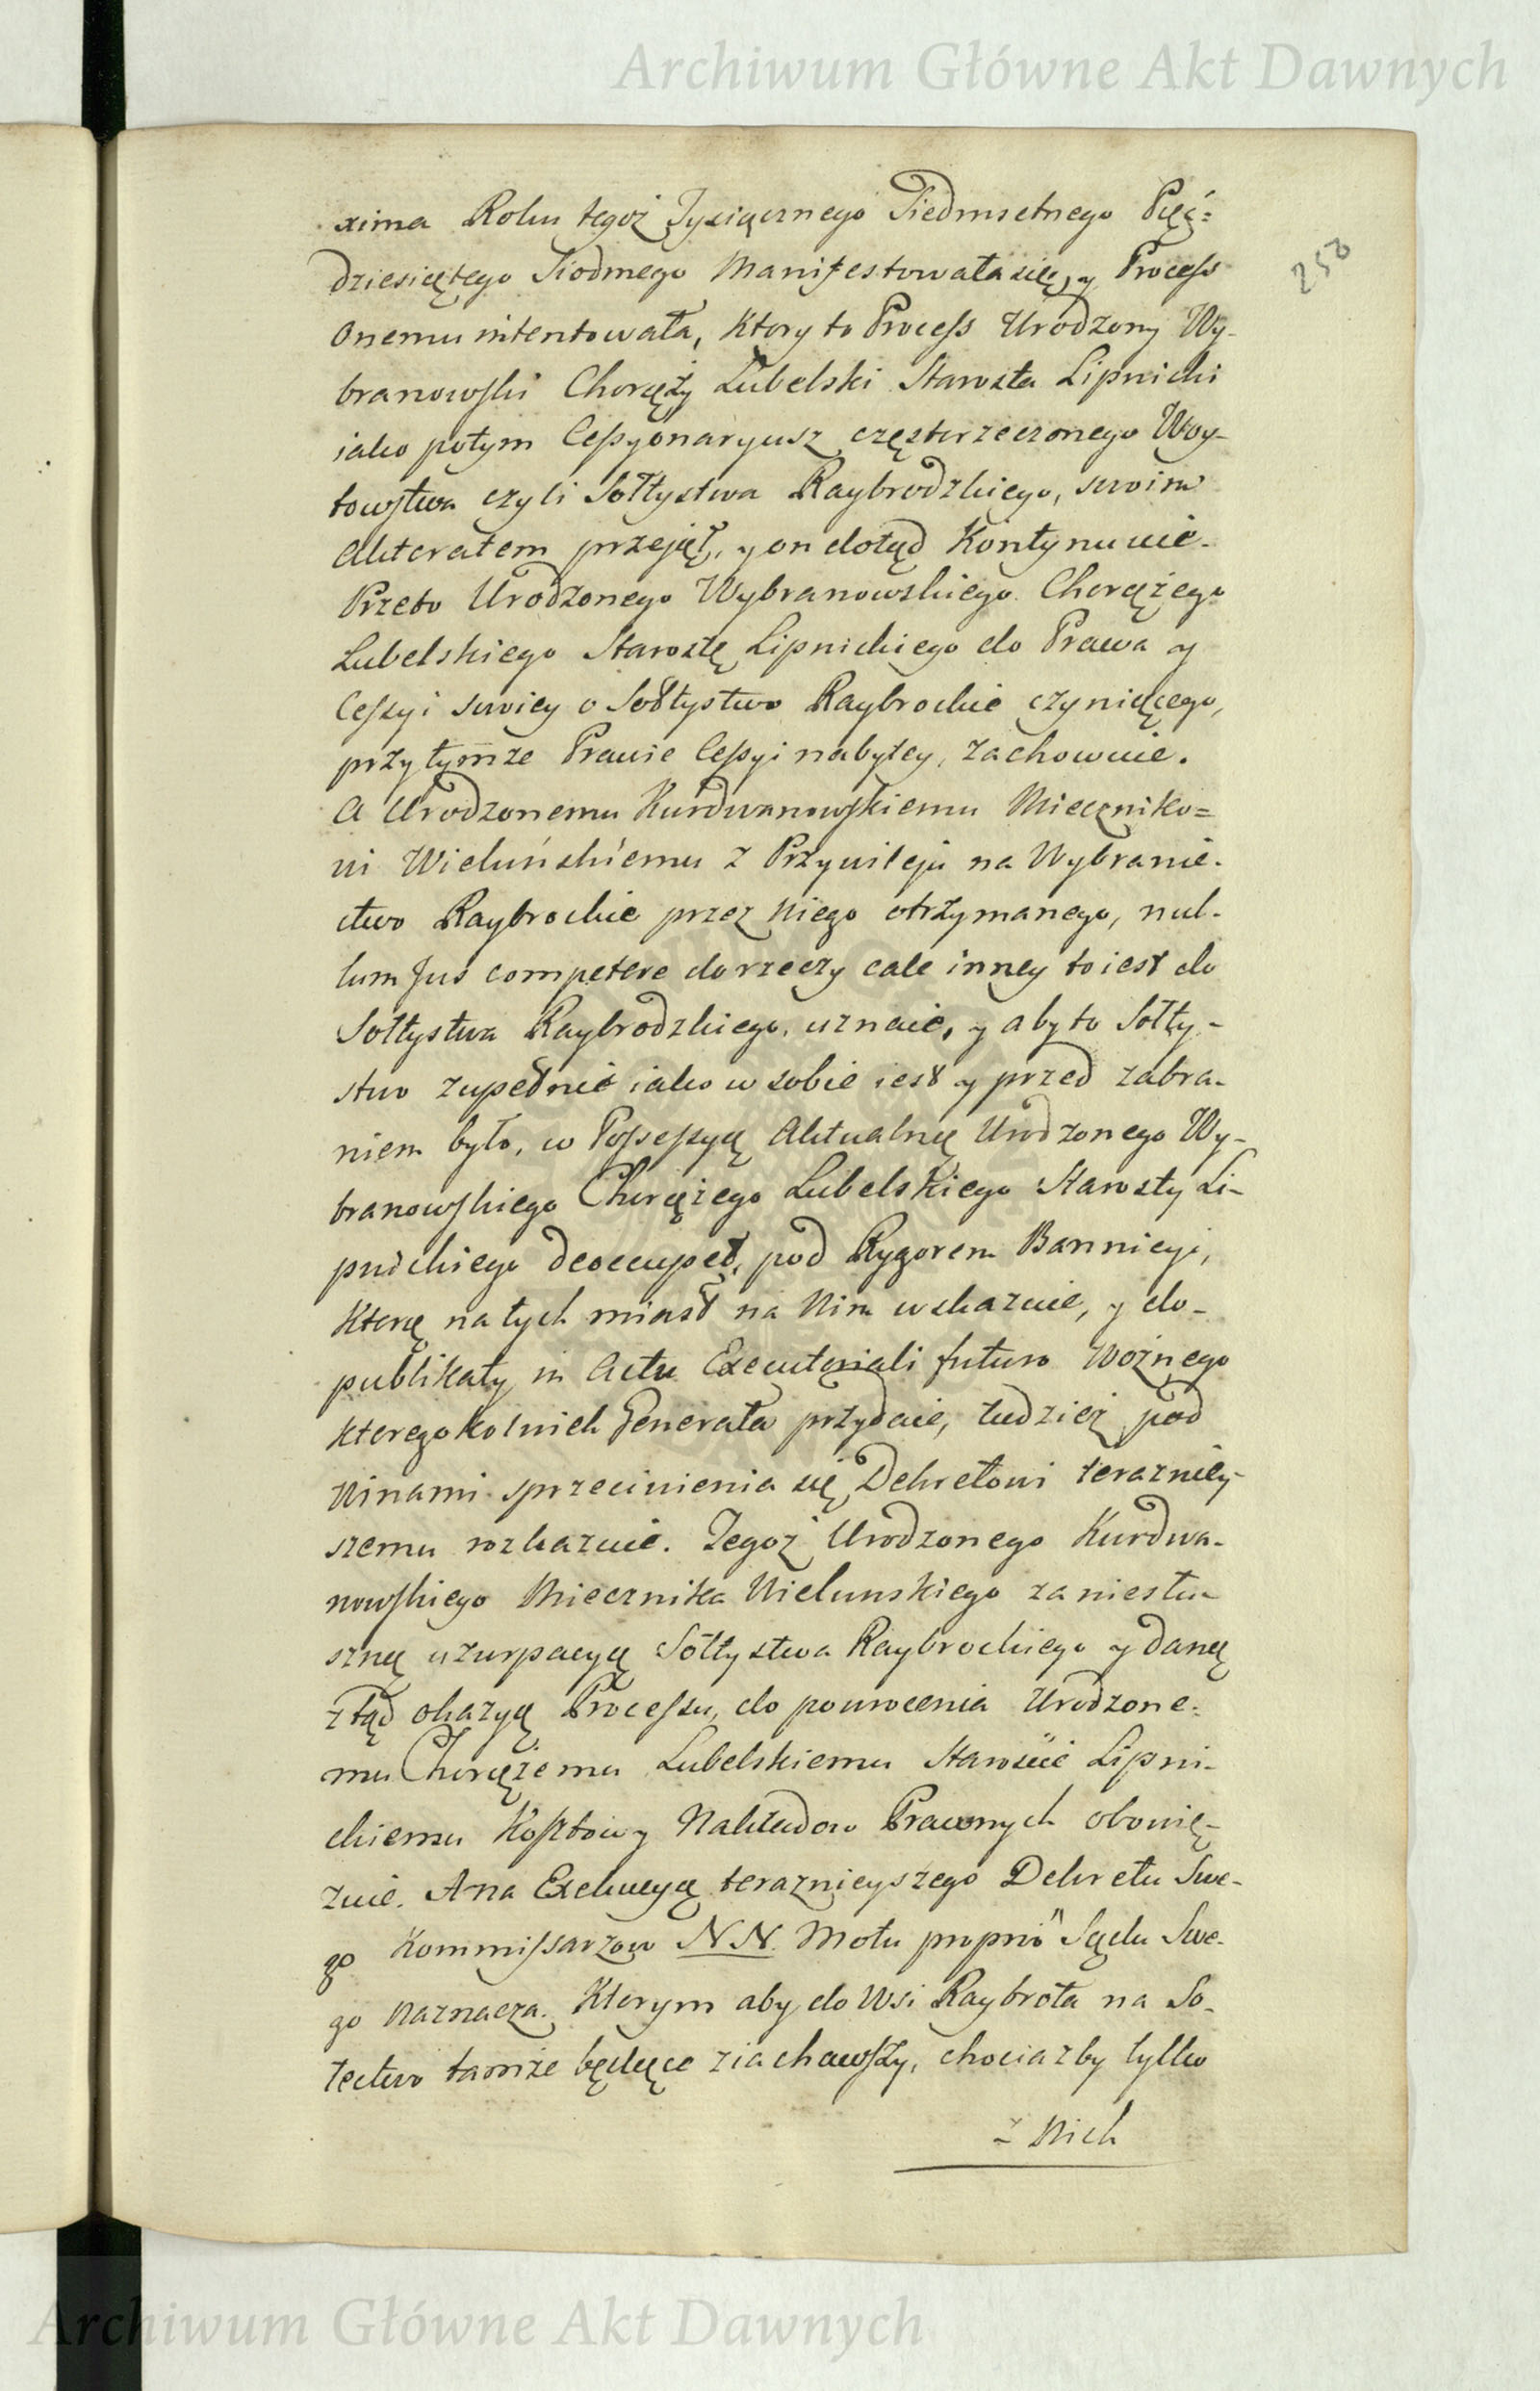 Archiwum Główne Akt Dawnych
250
xima Roku tegoż Tysiącznego Siedmsetnego Pięć=
dziesiątego Siodmego Manifestowała się, y Process
Onemu intentowała, Ktory to Process Urodzony Wy-
branowski Chorąży Lubelski Starosta Lipnicki
iako potym Cessyonaryusz częstorzeczonego Woy-
towstwa czyli Sołtystwa Raybrodzkiego, swoim
Akteratem przejął, y on dotąd Kontynuuie.
Przeto Urodzonego Wybranowskiego Chorążego
Lubelskiego Starostę Lipnickiego do Prawa y
Cessyi swoiey o Sołtystwo Raybrockie czyniącego,
przy tymże Prawie Cessyi nabytey, zachowuie.
A Urodzonemu Kurdwanowskiemu Mieczniko=
wi Wieluńskiemu z Przywileju na Wybranie-
ctwo Raybrockie przez Niego otrzymanego, nul-
lum Jus competere do rzeczy cale inney to iest do
Sołtystwa Raybrodzkiego, uznaie, y aby to Sołty-
stwo zupełnie iako w sobie iest y przed zabra-
niem było, w Possessyą Aktualną Urodzonego Wy-
branowskiego Chorążego Lubelskiego Starosty Li-
pnickiego deoccupał, pod Rygorem Bannicyi,
Ktorą natych miast na Nim wskazuie, y do
publikaty in Actu Executoriali futuro Woznego
ktoregokolwiek Generała przydaie, tudziez pod
Winami sprzeciwienia się Dekretowi terazniey-
szemu rozkazuie. Tegoż Urodzonego Kurdwa-
nowskiego Miecznika Wielunskiego za niesłu-
szną uzurpacyą Sołtystwa Raybrockiego y daną
ztąd okazyą Processu, do powrocenia Urodzone-
mu Chorążemu Lubelskiemu Staroscie Lipni-
ckiemu Kosztow y Nakładow Prawnych obowią-
zuie. A na Exekucyą teraznieyszego Dekretu Swe-
go Kommissarzow N N. Motu proprio Sądu Swe-
go Naznacza. Ktorym aby do Wsi Raybrota na So-
łectwo tamże będące ziachawszy, chociazby tylko
z Nich
Archiwum Główne Akt Dawnych